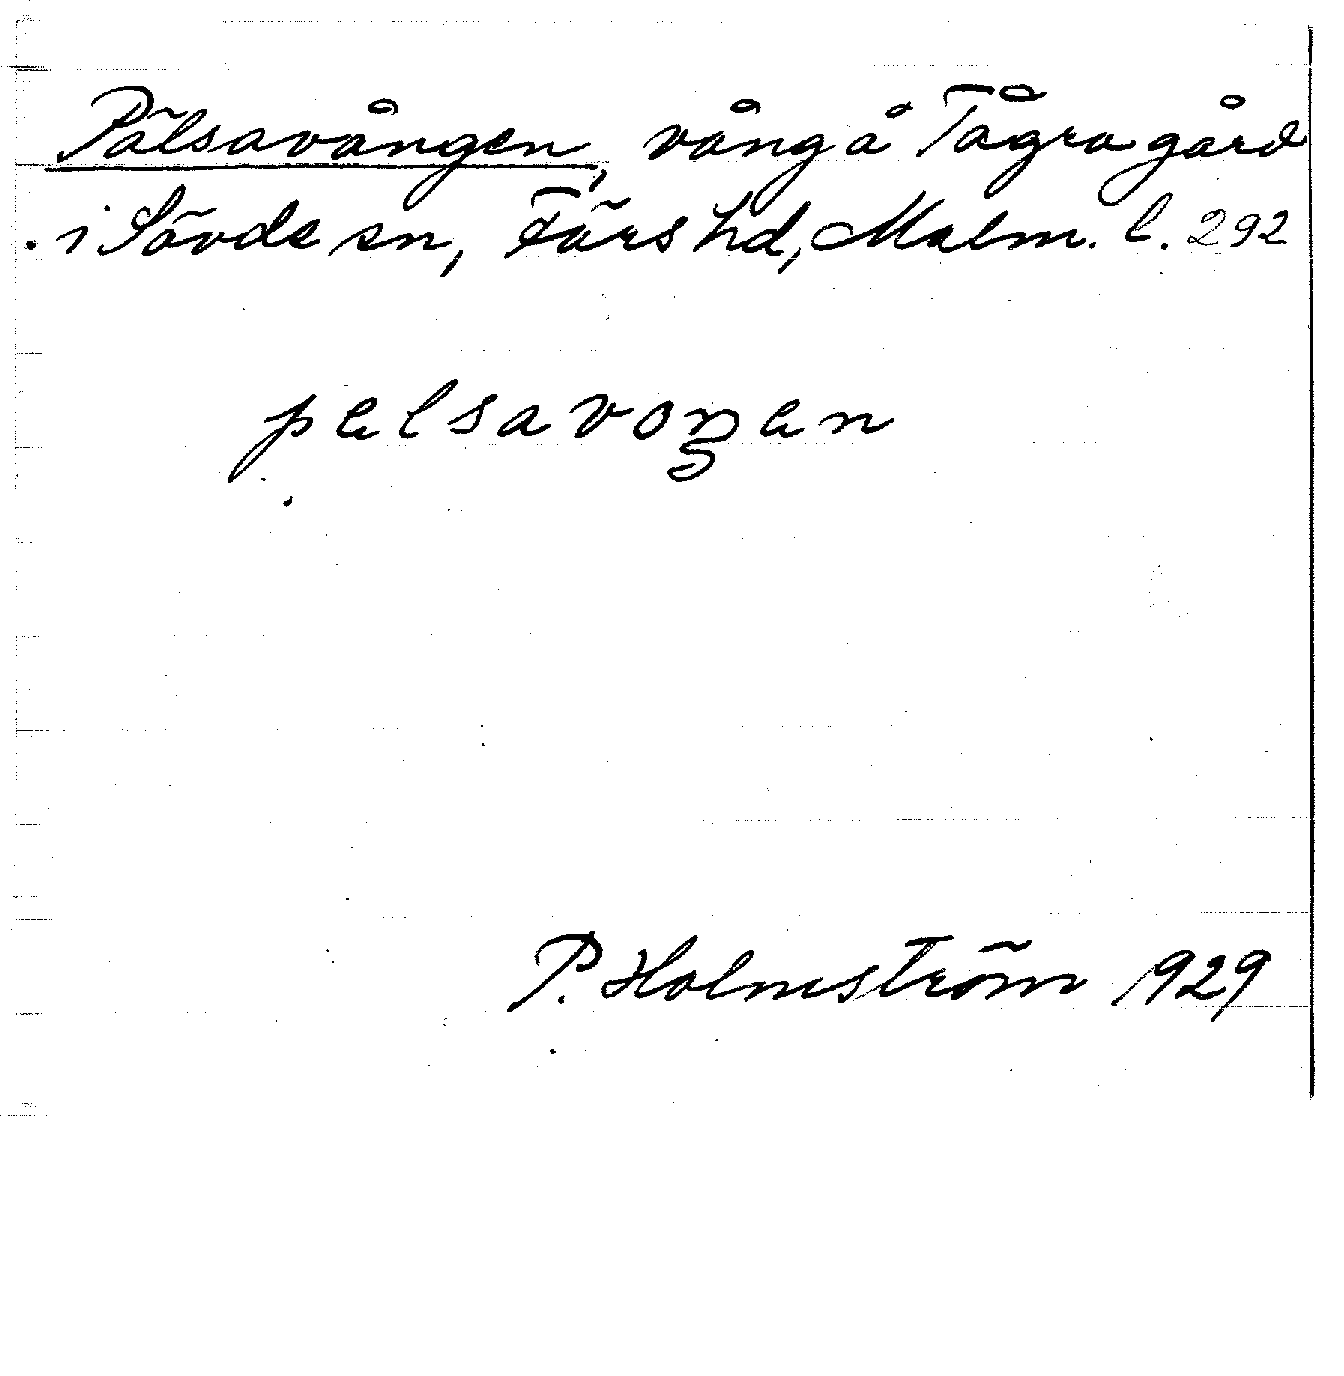 Pälsavången, vång å Tågra gård
i Sövde sn, Färs hd, Malm. l. 292
pælsavoŋæn
P. Holmström 1929